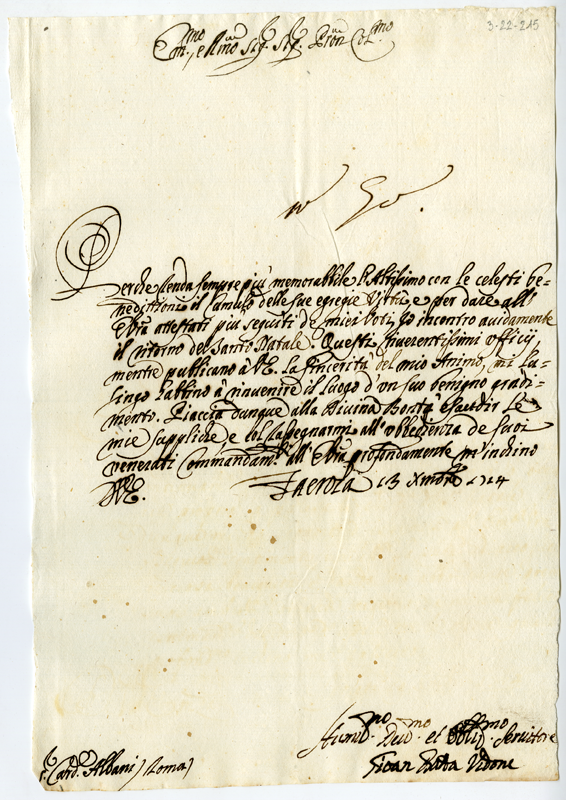 3-22-215
Em.mo e R.mo Sig. Sig. Pron Col.mo
Perche renda sempre più memorabbile l'Altissimo con le celesti be-
nedittioni il Cumulo delle sue egregie Virtù, e per dare all'
E.V.ra attestati più de miei Voti, Io incontro avidamente
il ritorno del Santo Natale. Questi riverentissimi ufficij,
mentre publicano à V.E. la sincerità del mio Animo, mi lu-
singo à rinvenire il luogo d'un suo benigno gradi-
mento. Piaccia dunque alla Divina Bontà esaudir le
mie suppliche, e col rassegnarmi all'obbedienza de suoi
venerati Commandam.ti all'E.V.ra profondamente m'inchino
D.V.E.
13 Xmbre 1724
Card. Albani / Roma /
Humil.mo Dev.mo et Obblig.mo Servitore